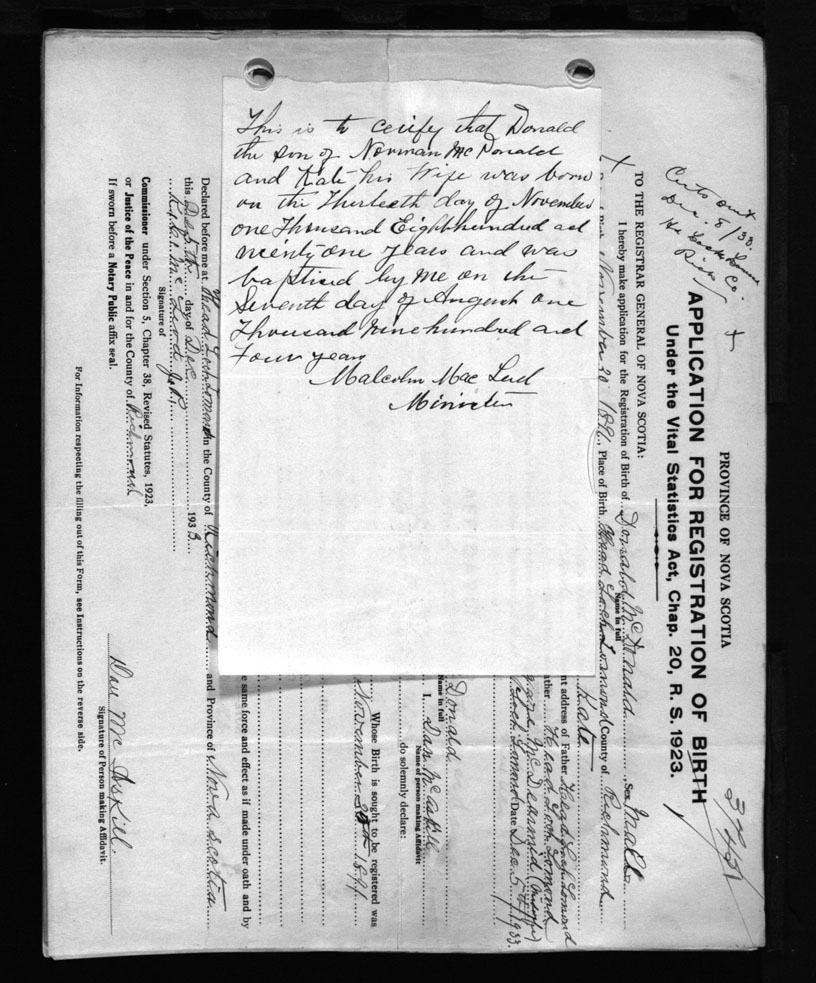 This is to cerify that Donald
the son of Norman Mc Donald
and Kate his Wife was born
on the Thirteeth day of November
one Thousand Eighthundred and
nienty one years and was
baptised by me on the
Seventh day of August one
Thousand nine hundred and
Four years
Malcolm Mac Leod
Minister
Certs out
Dec. 8/33.
Co.
PROVINCE OF NOVA SCOTIA
APPLICATION FOR REGISTRATION OF BIRTH
Under the Vital Statistics Act, Chap. 20, R. S. 1923.
TO THE REGISTRAR GENERAL OF NOVA SCOTIA:
I hereby make application for the Registration of Birth of Donald McDonald, Sex Male
Name in full
November 20 1891, Place of Birth Head Loch Lomond County of Richmond
Kate
nt address of Father Head Loch Lomond
ather Head Loch Lomond
Mc Dearmid
Loch Lomond Date Dec 5 1933.
Donald
Name in full
I, Dan McAskill
Name of person making Affidavit
do solemnly declare:
Whose Birth is sought to be registered was
November 20th 1891
e same force and effect as if made under oath and by
Declared before me at Head Loch Lomond in the County of Richmond and Province of Nova Scotia
this day of Dec 1933
Signature of
Commissioner under Section 5, Chapter 38, Revised Statutes, 1923,
or Justice of the Peace in and for the County of Richmond
If sworn before a Notary Public affix seal.
Dan McAskill.
Signature of Person making Affidavit.
For Information respecting the filling out of this Form, see Instructions on the reverse side.